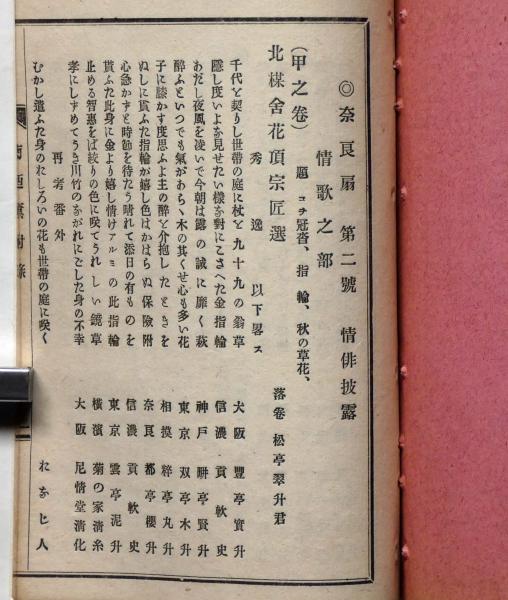 ◎奈良扇 第二號 情俳披露
情歌之部
題 コチ冠沓、指輪、秋の草花、
(甲之卷)
落卷 松亭翠升君
北楳舍花頂宗匠選
秀逸 以下畧ス
千代と契りし世帶の庭に杖と九十九の翁草 大阪 豐亭寶升
隱し度いよな見せたい樣な對にこさへた金指輪 信濃 貢軟史
あだし夜風を凌いで今朝は露の誠に靡く萩 神戸 駢亭賢升
醉ふといつでも氣があらゝ木の其くせ心も多い花 東京 双亭木升
子に膝かす度思ふよ主の醉を介抱したときを 相摸 粹亭丸升
ぬしに貰ふた指輪が嬉し色はかはらぬ保險附 奈良 都亭櫻升
心急かずと時節を待たう晴れて添日の有ものを 信濃 貢軟史
貰ふた此身に金より嬉し情けアルミの此指輪 東京 雲亭泥升
止める智惠をば絞りの色に咲てうれしい鏡草 橫濱 菊の家淸糸
孝にしずめてうき川竹のながれにごした身の不幸 大阪 尼情堂淸化
再考番外
むかし遣ふた身のおしろいの花も世帶の庭に咲く おなじ人